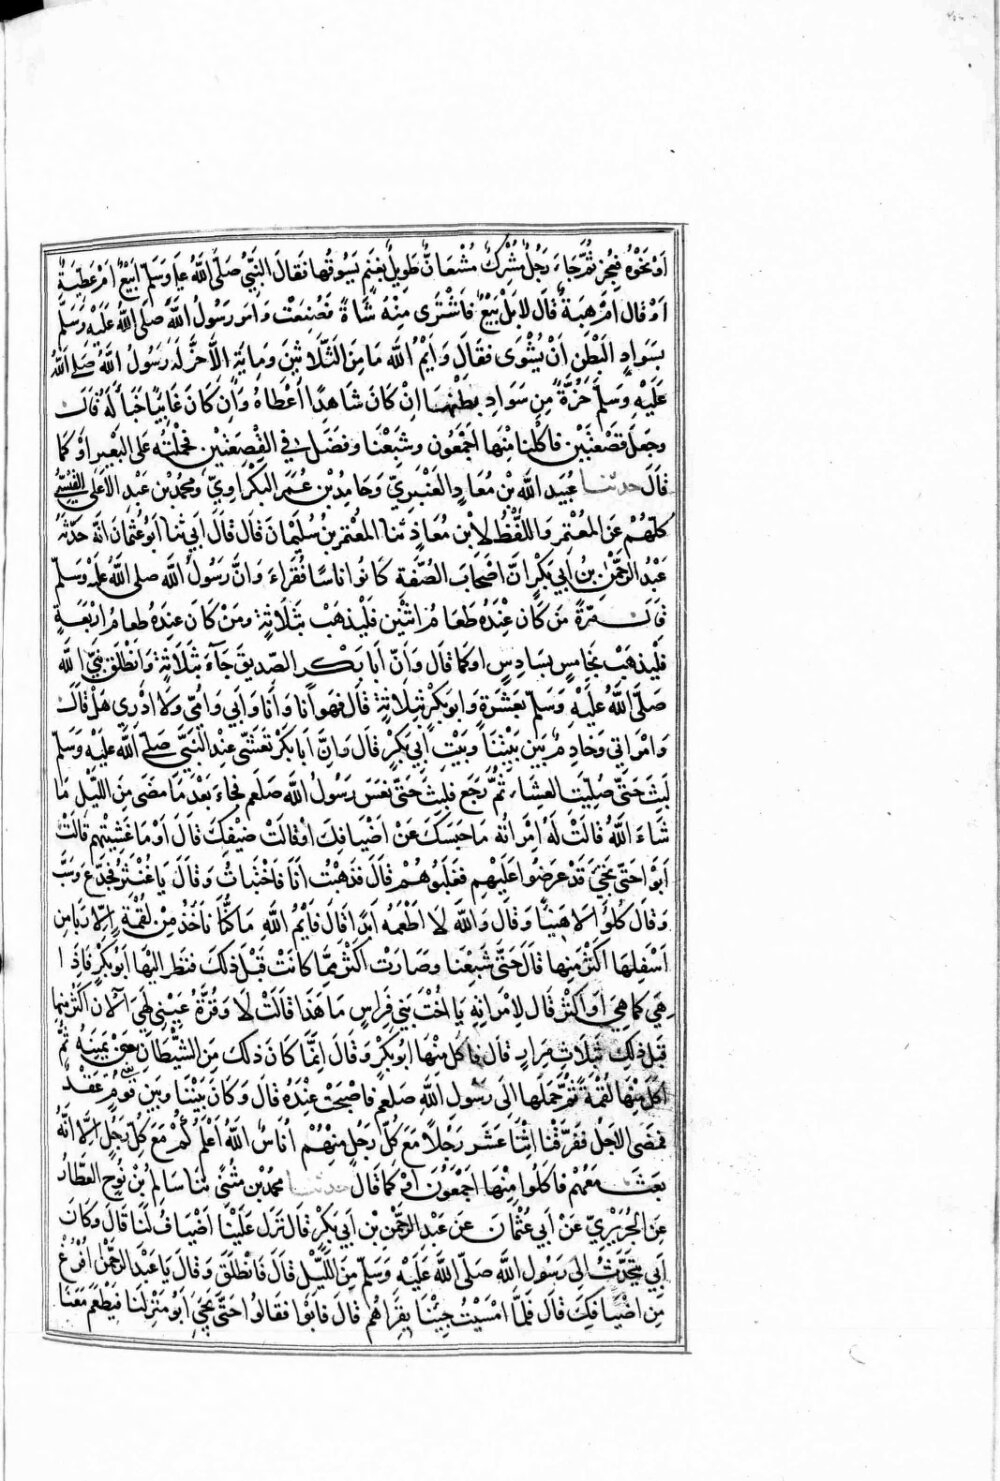 او نحوه فعجن ثم جاء رجل مشرك مشعان طويل بغنم يسوقها فقال النبي صلى الله عليه وسلم ابيع ام عطية
او قال ام هبة قال لا بل بيع فاشترى منه شاة فصنعت وامر رسول الله صلى الله عليه وسلم
بسواد البطن أن يشوى فقال وايم الله ما من الثلاثين ومائة الا حز له رسول الله صلى الله
عليه وسلم حزة من سواد بطنها ان كان شاهدا أعطاه وان كان غائبا خبأ له قال
وجعل قصعتين فاكلنا منها اجمعون وشبعنا وفضل في القصعتين فحملته على البعير او كما
قال حدثنا عبيد الله بن معاذ العنبري وحامد بن عمر البكراوي ومحمد بن عبد الاعلى القيسي
كلهم عن المعتمر واللفظ لابن معاذ ثنا المعتمر بن سليمان قال قال ابي ثنا أبو عثمان انه حدثه
عبد الرحمن بن أبي بكر ان اصحاب الصفة كانوا ناسا فقراء وان رسول الله صلى الله عليه وسلم
قال مرة من كان عنده طعام اثنين فليذهب بثلاثة ومن كان عنده طعام اربعة
فليذهب بخامس بسادس او كما قال وان أبا بكر الصديق جاء بثلاثة وانطلق نبي الله
صلى الله عليه وسلم بعشرة وابو بكر بثلاثة قال فهو انا وأنا وابي وامي ولا ادري هل قال
وامراتي وخادم بين بيتنا وبيت ابي بكر قال وان أبا بكر تعشى عند النبي صلى الله عليه وسلم
لبث حتى صليت العشاء ثم رجع فلبث حتى نعس رسول الله صلعم فجاء بعد ما مضى من الليل ما
شاء الله قالت له امراته ما حبسك عن اضيافك او قالت ضيفك قال او ما عشيتهم قالت
ابوا حتى تجئ قد عرضوا عليهم فغلبوهم قال فذهبت أنا فاختبات وقال يا غنثر فجدع وسب
وقال كلوا لا هنيئا وقال والله لا اطعمه ابدا قال فايم الله ما كنا ناخذ من لقمة الا ربا من
اسفلها اكثر منها قال حتى شبعنا وصارت اكثر مما كانت قبل ذلك فنظر اليها أبو بكر فاذا
هي كما هي او اكثر قال لامراته يا اخت بني فراس ما هذا قالت لا وقرة عيني لهي الآن اكثر منها
قبل ذلك بثلاث مرار قال فاكل منها ابو بكر وقال انما كان ذلك من الشيطان يعني يمينه ثم
اكل منها لقمة ثم حملها الى رسول الله صلعم فاصبحت عنده قال وكان بيننا وبين قوم عقد
فمضى الاجل ففرقنا اثنا عشر رجلا مع كل رجل منهم أناس الله أعلم كم مع كل رجل الا انه
بعث معهم فاكلوا منها اجمعون او كما قال حدثنا محمد بن مثنى ثنا سالم بن نوح العطار
عن الجريري عن أبي عثمان عن عبد الرحمن بن ابي بكر قال نزل علينا اضياف لنا قال وكان
أبي يتحدث الى رسول الله صلى الله عليه وسلم من الليل قال فانطلق وقال يا عبد الرحمن افرغ
من اضيافك قال فلما امسيت جئنا بقراهم قال فابوا فقالوا حتى يجئ ابو منزلنا فيطعم معنا